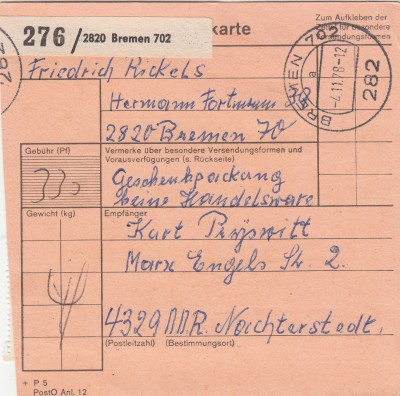 276 / 2820 Bremen 702
karte
Zum Aufkleben der
Zettel für besondere
Versendungsformen
282
BREMEN 702
a
-4.11.78-12
282
Friedrich Rickels
Hermann Fortmann
2820 Bremen 70
Gebühr (Pf)
Vermerke über besondere Versendungsformen und
Vorausverfügungen (s. Rückseite)
Geschenkpackung
keine Handelsware
Gewicht (kg)
Empfänger
Kurt
Marx Engels Str. 2.
4329
(Postleitzahl) (Bestimmungsort)
+ P 5
PostO Anl. 12